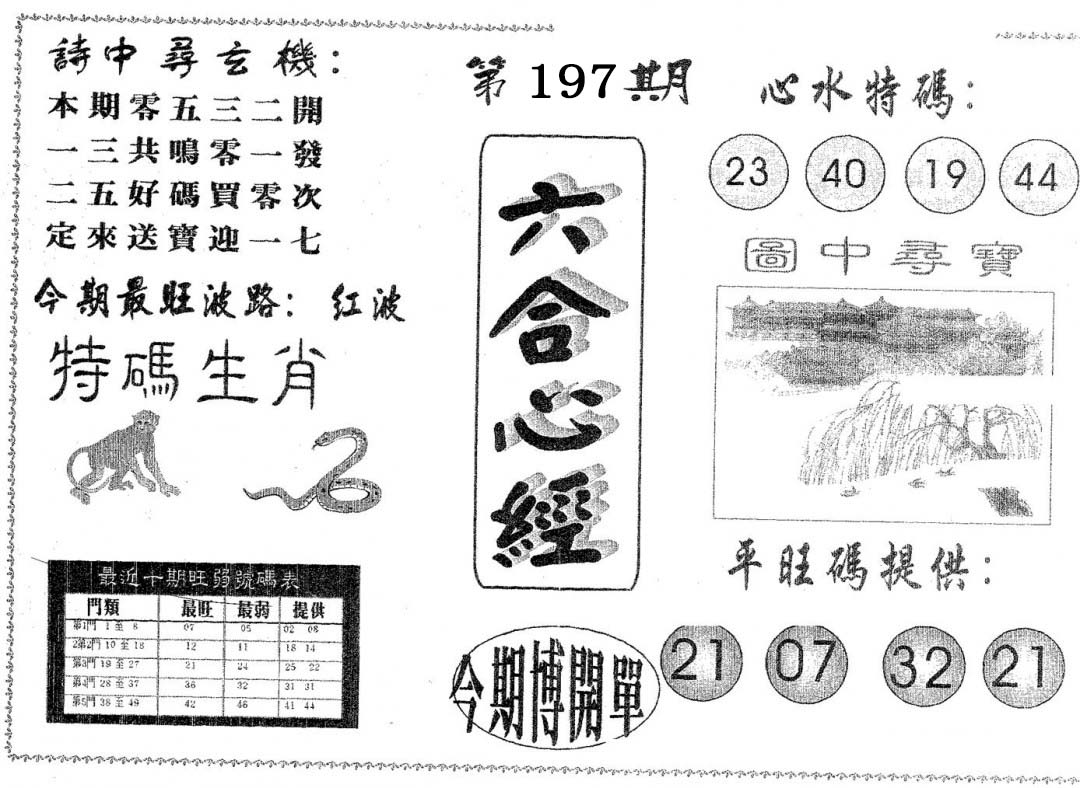 詩中尋玄機：
本期零五三二開
一三共鳴零一發
二五好碼買零次
定來送寶迎一七
今期最旺波路：紅波
特碼生肖
最近十期旺弱號碼表
門類 最旺 最弱 提供
第1門 1至8 07 05 02 08
2第2門 10至18 12 11 18 14
第3門 19至27 21 24 25 22
第4門 28至37 36 32 31 31
第5門 38至49 42 46 41 44
第197期
六合心經
今期博開單
心水特碼：
23 40 19 44
圖中尋寶
平旺碼提供：
21 07 32 21